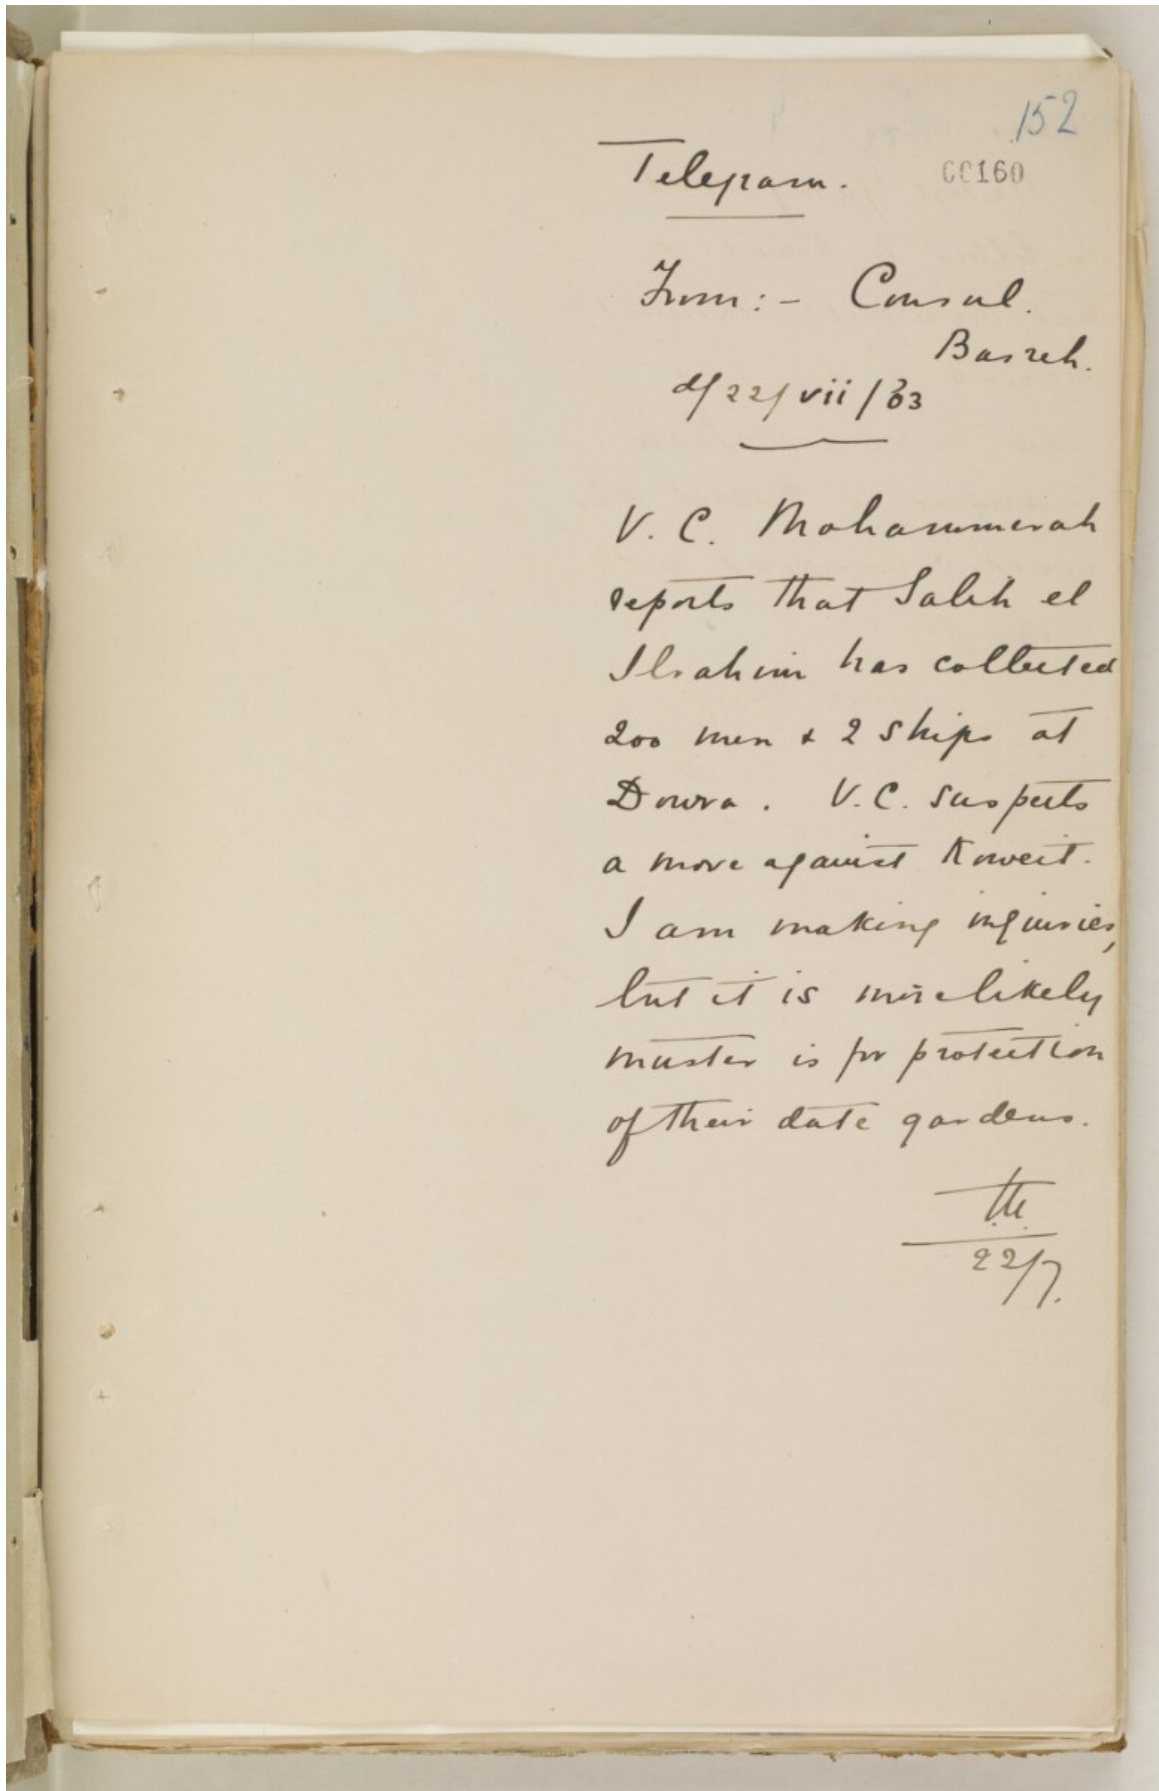 152
Telegram.
00160
From:- Consul.
Basreh.
d/22/vii/03
V. C. Mohammerah
reports that Salih el
Ibrahim has collected
200 men & 2 ships at
Dowra. V.C. suspects
a move against Koweit.
I am making inquiries,
but it is more likely
muster is for protection
of their date gardens.
22/7.